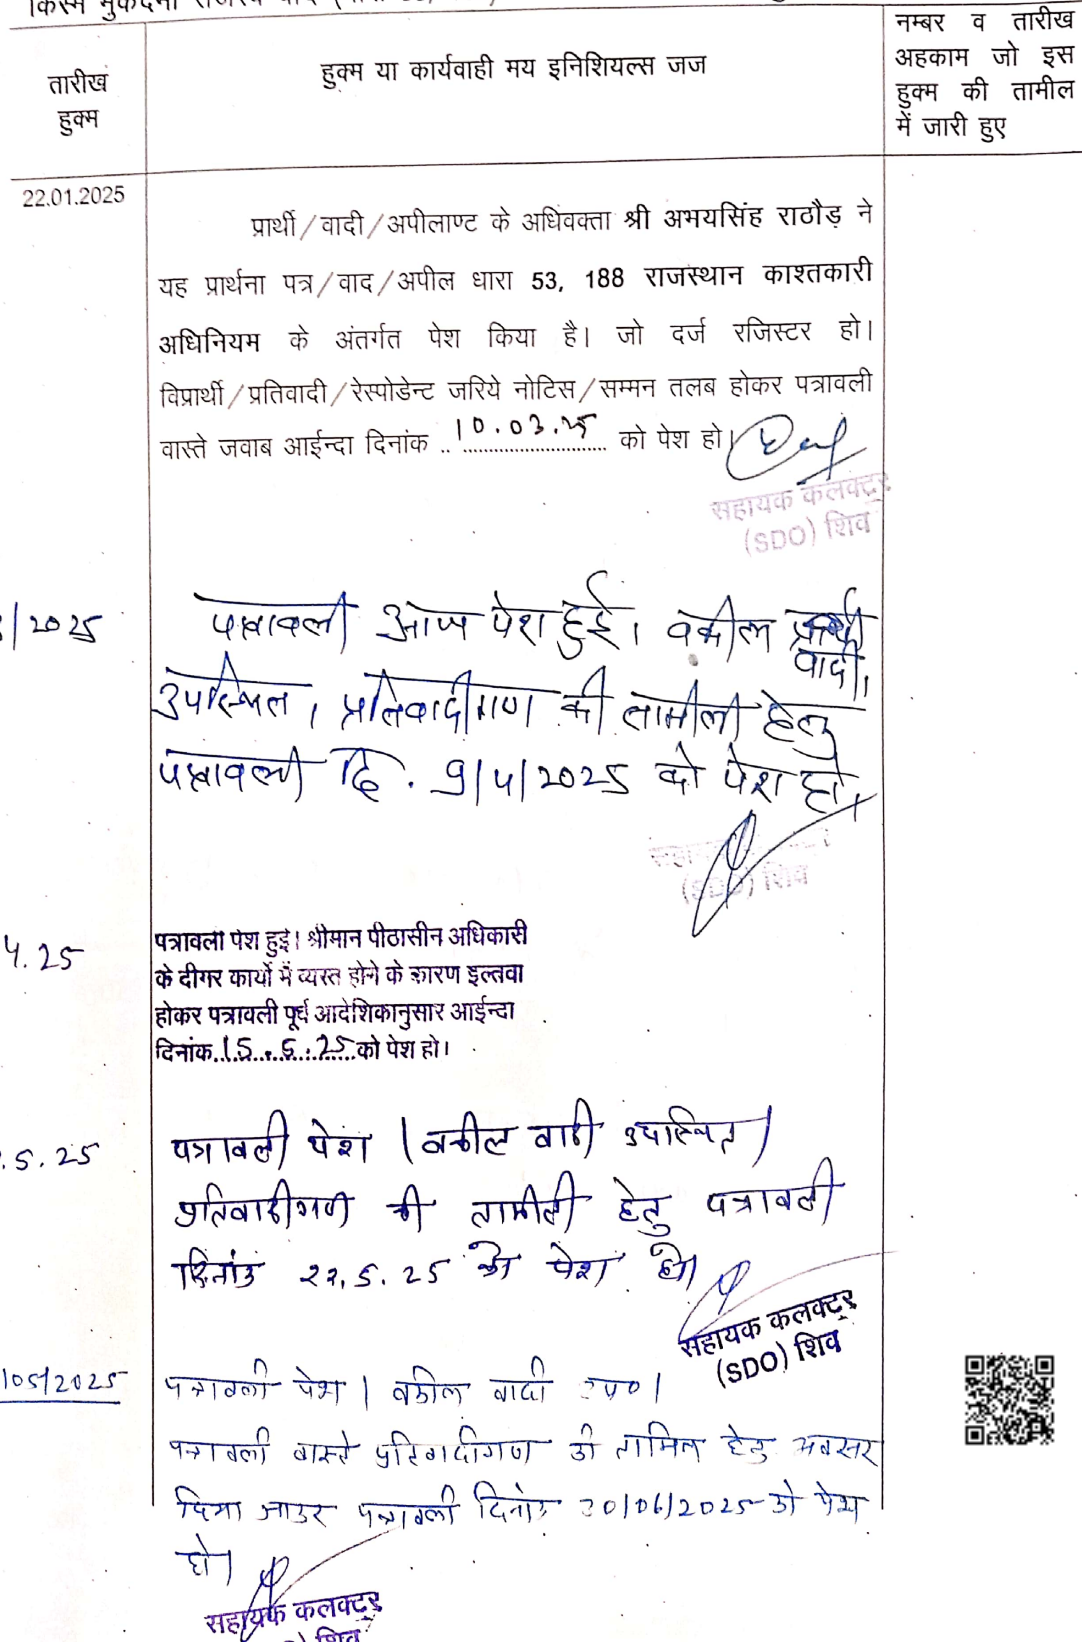 किस्म मुकदमा राजस्व वाद
तारीख हुक्म
हुक्म या कार्यवाही मय इनिशियल्स जज
नम्बर व तारीख
अहकाम जो इस
हुक्म की तामील
में जारी हुए
22.01.2025
प्रार्थी/वादी/अपीलाण्ट के अधिवक्ता श्री अभयसिंह राठौड़ ने
यह प्रार्थना पत्र/वाद/अपील धारा 53, 188 राजस्थान काश्तकारी
अधिनियम के अंतर्गत पेश किया है। जो दर्ज रजिस्टर हो।
विप्रार्थी/प्रतिवादी/रेस्पोडेन्ट जरिये नोटिस/सम्मन तलब होकर पत्रावली
वास्ते जवाब आईन्दा दिनांक .. 10.03.25 को पेश हो।
सहायक कलक्टर
(SDO) शिव
/2025 पत्रावली आज पेश हुई। वकील
वादी
उपस्थित। प्रतिवादीगण की तामीली हेतु
पत्रावली दि. 9/4/2025 को पेश हो।
(SDO) शिव
4.25
पत्रावली पेश हुई। श्रीमान पीठासीन अधिकारी
के दीगर कार्यो में व्यस्त होने के कारण इल्तवा
होकर पत्रावली पूर्व आदेशिकानुसार आईन्दा
दिनांक 15.5.25 को पेश हो।
.5.25 पत्रावली पेश। वकील वादी उपस्थित।
प्रतिवादीगण की तामीली हेतु पत्रावली
दिनांक 22.5.25 को पेश हो।
सहायक कलक्टर
(SDO) शिव
/05/2025 पत्रावली पेश। वकील वादी उप०।
पत्रावली वास्ते प्रतिवादीगण की तामिल हेतु अवसर
दिया जाकर पत्रावली दिनांक 30/06/2025 को पेश
हो।
सहायक कलक्टर
शिव